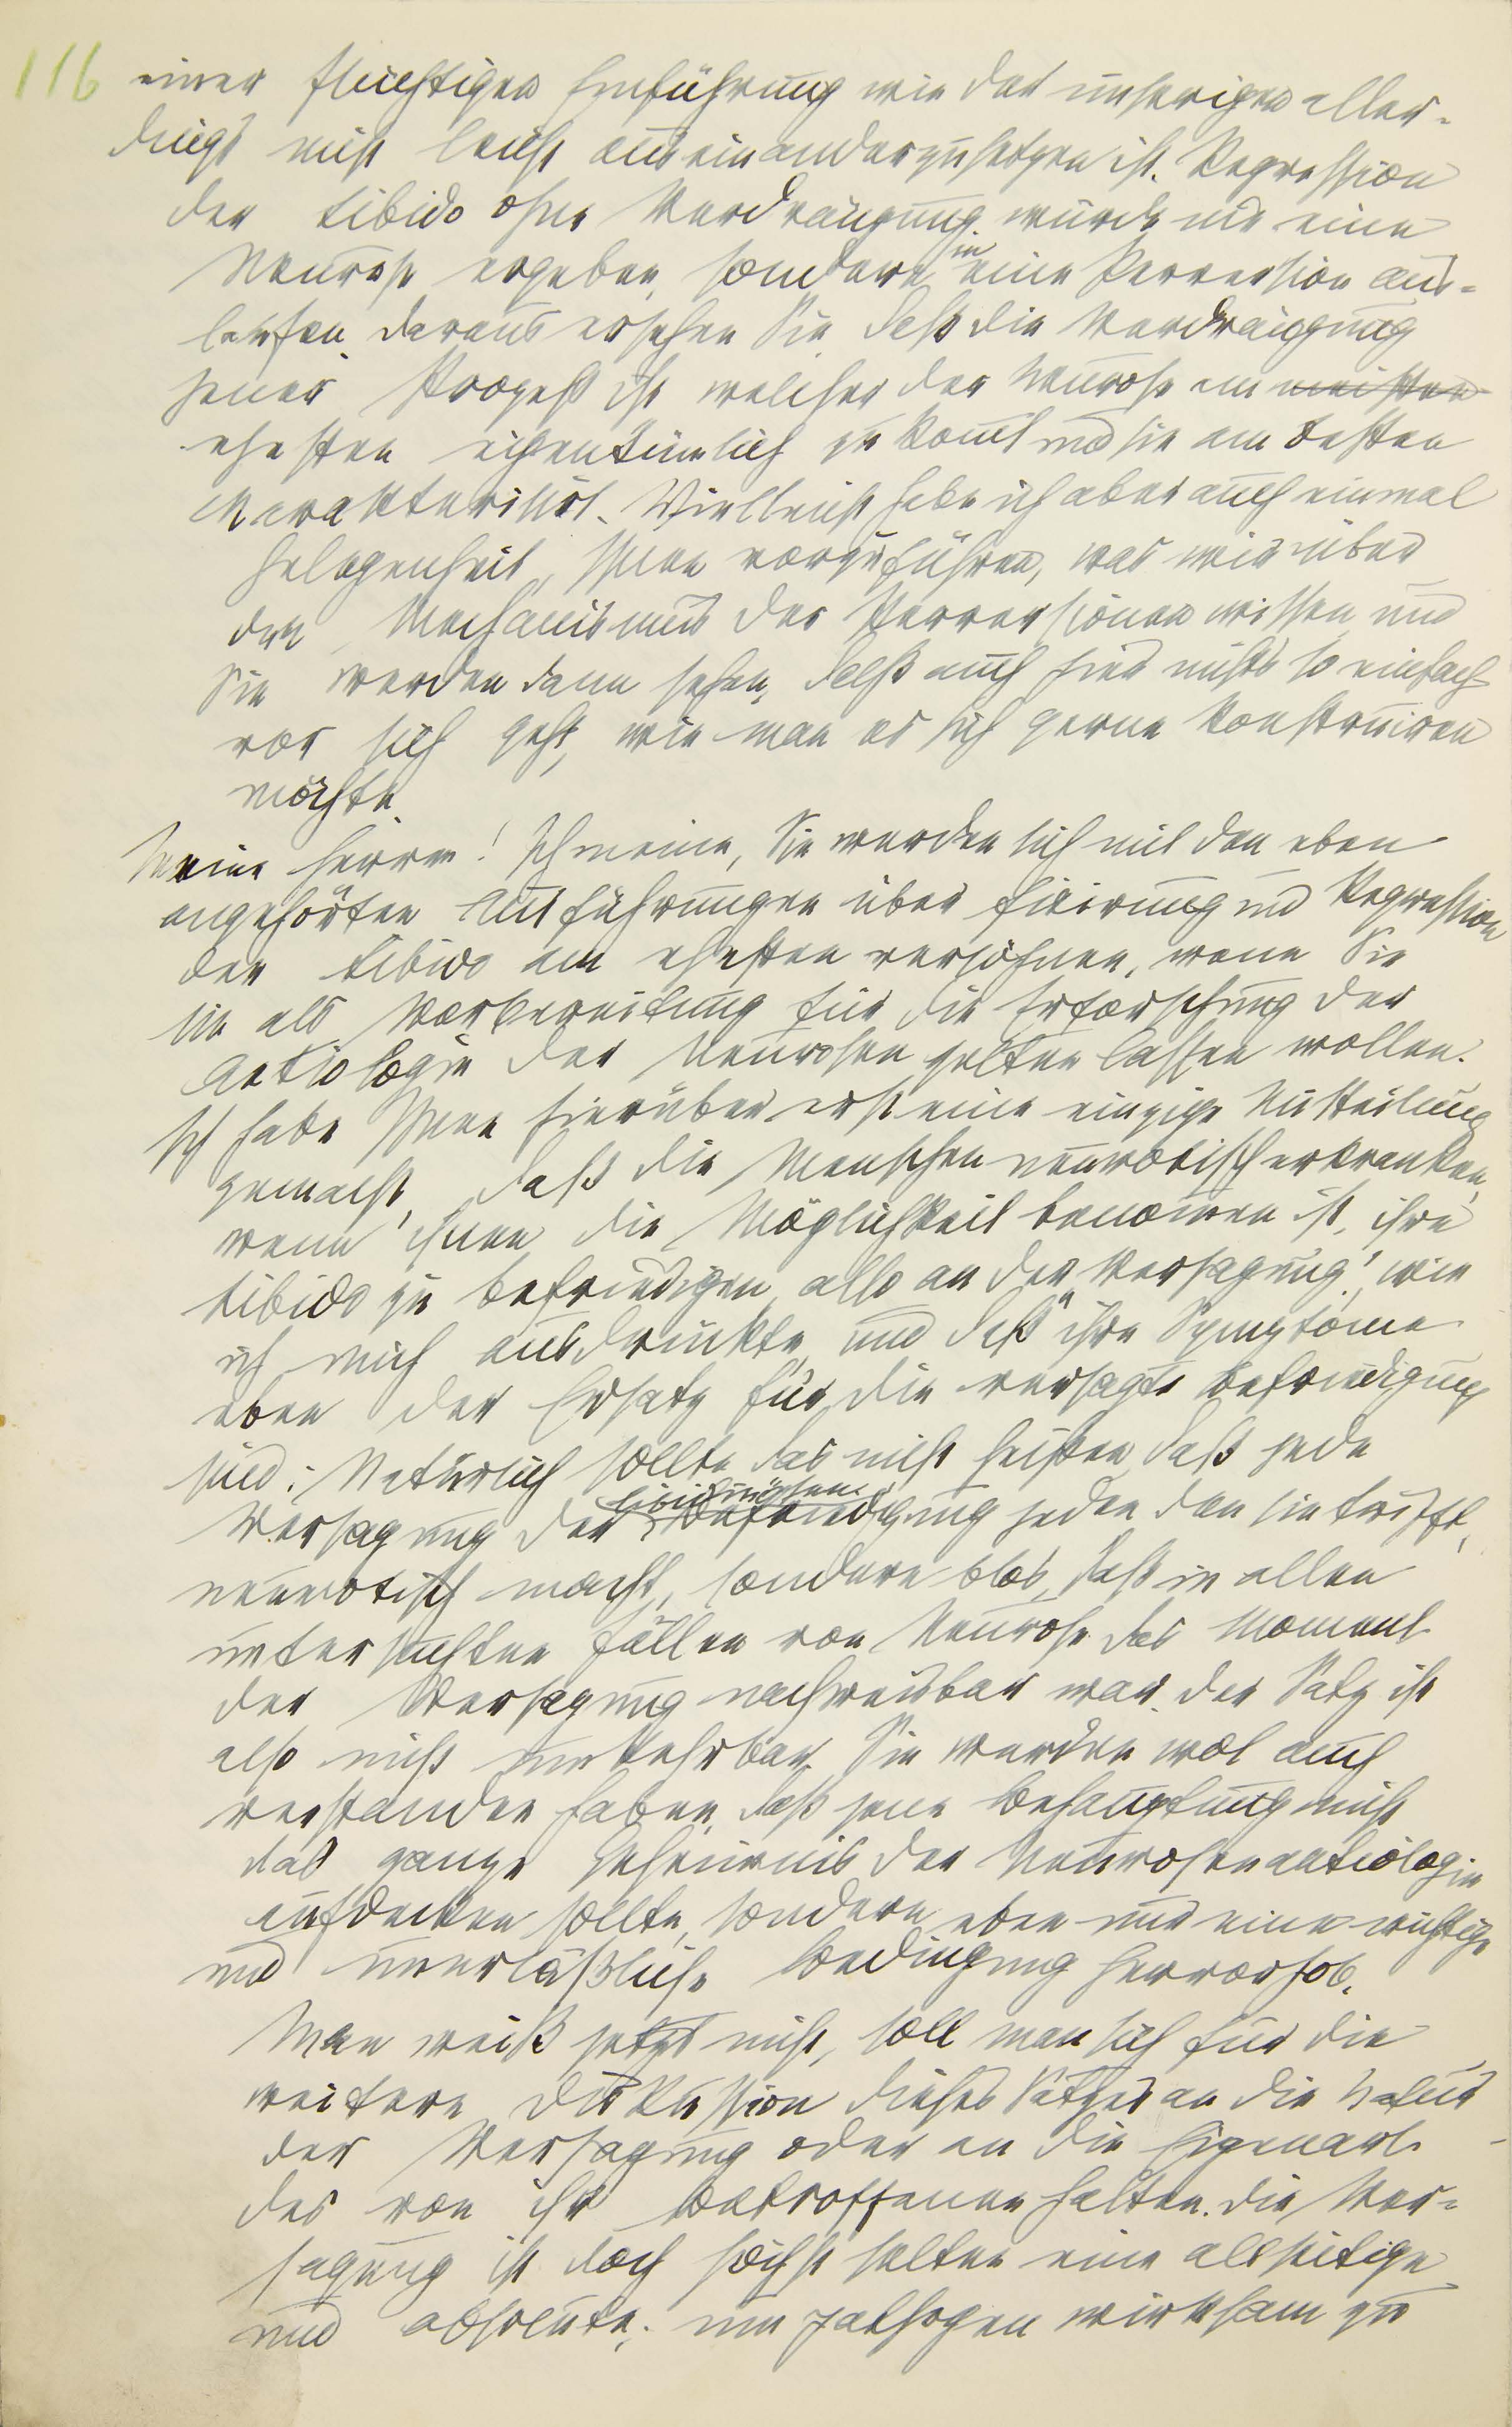 116
einer flüchtigen Einführung wie der unserigen aller-
dings nicht leicht auseinanderzusetzen ist. Regression
der Libido ohne Verdrängung würde nie eine
Neurose ergeben, sondern in eine Perversion aus-
laufen. Daraus ersehen Sie, daß die Verdrängung
jener Prozeß ist, welcher der Neurose am meisten
ehesten eigentümlich zukomt und sie am besten
charakterisirt. Vielleicht habe ich aber auch einmal
Gelegenheit, Ihnen vorzuführen, was wir über
den Mechanismus der Perversionen wissen und
Sie werden dann sehen, daß auch hier nichts so einfach
vor sich geht, wie man es sich gerne konstruiren
möchte.
Meine Herren! Ich meine, Sie werden sich mit den eben
angehörten Ausführungen über Fixirung und Regression
der Libido am ehesten versöhnen, wenn Sie
sie als Vorbereitung für die Erforschung der
Aetiologie der Neurosen gelten lassen wollen.
Ich habe Ihnen hierüber erst eine einzige Mitteilung
gemacht, daß die Menschen neurotisch erkranken,
wenn ihnen die Möglichkeit benommen ist, ihre
Libido zu befriedigen, also an der „Versagung“, wie
ich mich ausdrückte, und daß ihre Symptome
eben der Ersatz für die versagte Befriedigung
sind. Natürlich sollte das nicht heißen, daß jede
Versagung der libidinösen Befriedigung jeden, den sie trifft,
neurotisch macht, sondern blos, daß in allen
untersuchten Fällen von Neurose das Moment
der Versagung nachweisbar war. Der Satz ist
also nicht umkehrbar. Sie werden wol auch
verstanden haben, daß jene Behauptung nicht
das ganze Geheimnis der Neurosenaetiologie
aufdecken sollte, sondern eben nur eine wichtige
und unerläßliche Bedingung hervorhob.
Man weiß jetzt nicht, soll man sich für die
weitere Diskussion dieses Satzes an die Natur
der Versagung oder an die Eigenart
des von ihr Betroffenen halten. Die Ver-
sagung ist doch höchst selten eine allseitige
und absolute; um pathogen wirksam zu